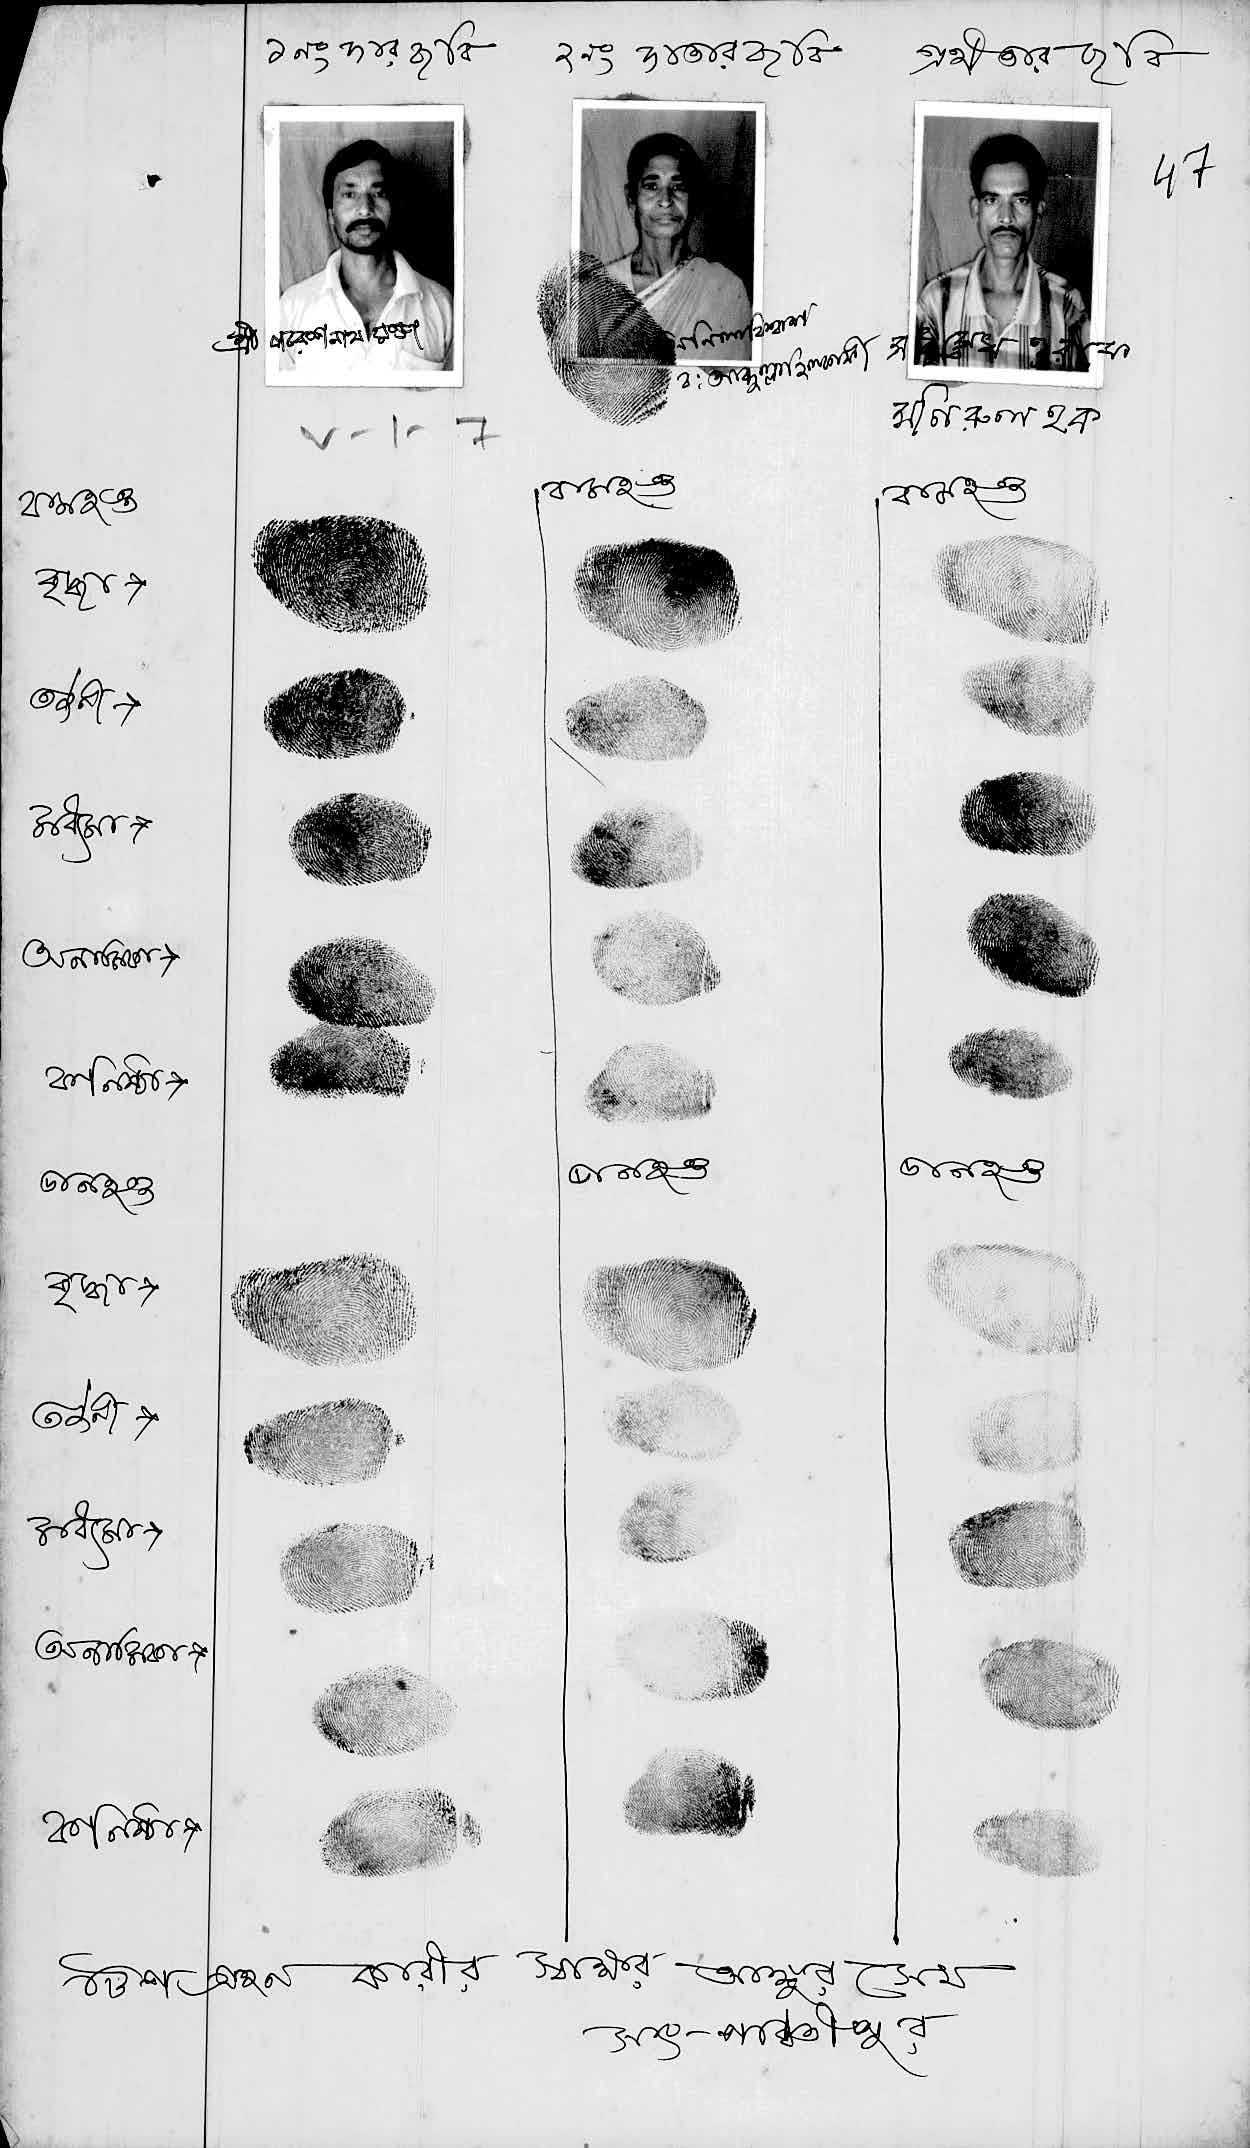 ১নং দাতার ছবি ২নং দাতার ছবি গ্রহীতার ছবি
47
শ্রী পরেশনাথ মণ্ডল
মনিরুল হক
V-1-7
বামহস্ত বামহস্ত বামহস্ত
বৃদ্ধা→
তর্জনী→
মধ্যমা→
অনামিকা→
কনিষ্ঠা→
ডানহস্ত ডানহস্ত ডানহস্ত
বৃদ্ধা→
তর্জনী→
মধ্যমা→
অনামিকা→
কনিষ্ঠা→
টিপ গ্রহন কারীর স্বাক্ষর সেখ
সাং-পার্বতীপুর